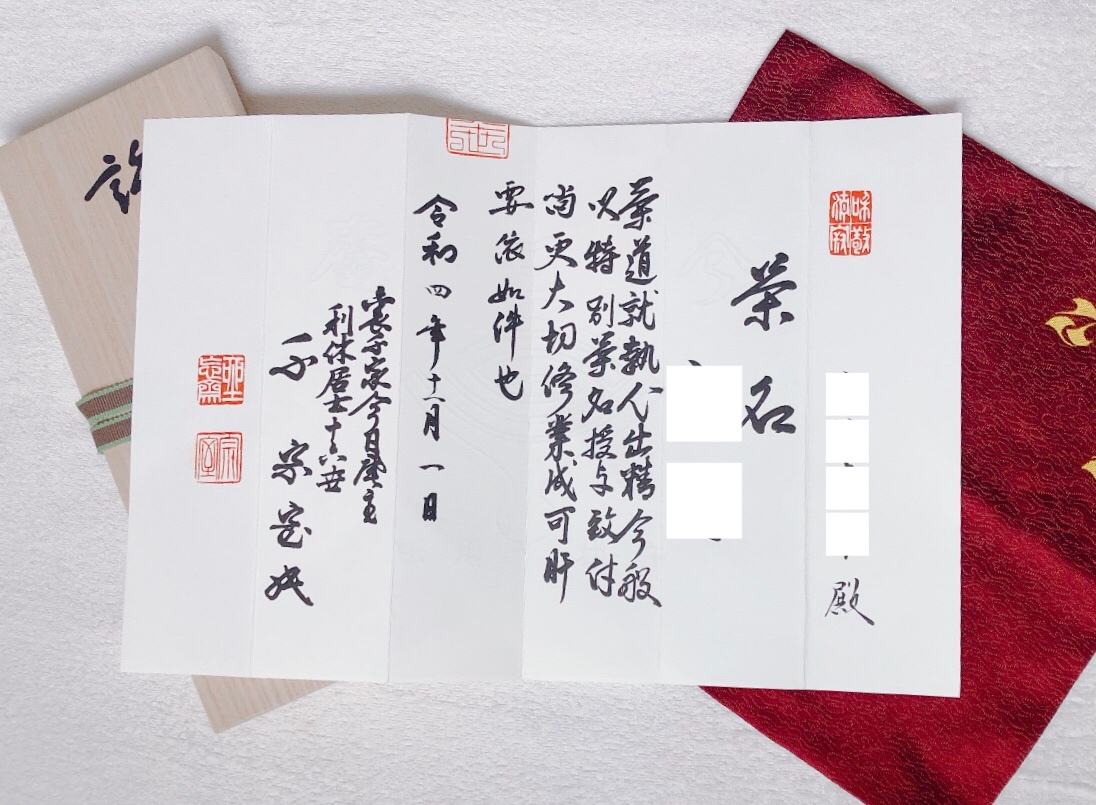 和敬清寂
殿
茶名
茶道就執心出精今般
以特別茶名授与致付
尚更大切修業成可肝
要依如件也
令和四年十一月一日
裏千家今日庵主
利休居士十六世
千宗室
宗室
許